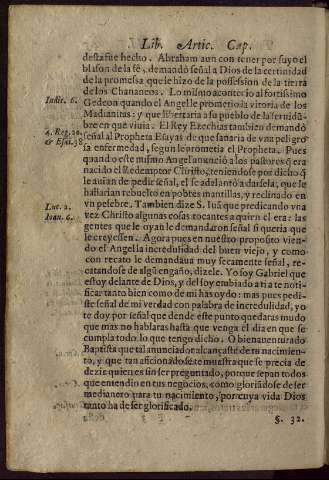 Lib. Artic. Cap.
desta fue hecho. Abraham aun con tener por suyo el
blason de la fè, demandò señal a Dios de la certinidad
de la promessa que le hizo de la possession de la tierra
de los Chananeos. Lo mismo acontecio al fortissimo
Iudic. 6.
Gedeon quando el Angel le prometio la vitoria de los
Madianitas: y que libertaria a su pueblo de la seruidũ-
bre en que viuia: El Rey Ezechias tambien demandò
4. Reg. 20.
señal al Propheta Esayas de que sanaria de vna peligro
& Esai. 38
sa enfermedad, segun le prometia el Propheta. Pues
quando este mismo Angel anunciò a los pastores q̃ era
nacido el Redemptor Christo, teniendose por dicho q̃
le auian de pedir señal, el se adelantò a darsela, que le
hallarian rebuelto en pobres mantillas, y reclinado en
Luc. 2.
vn pesebre. Tambien dize S. Iuã que predicando vna
Ioan. 6.
vez Christo algunas cosas tocantes a quien el era: las
gentes que le oyan le demandaron señal si queria que
le creyessen. Agora pues en nuestro proposito vien-
do el Angel la incredulidad del buen viejo, y como
con recato le demandaua muy secamente señal, re-
catandose de algũ engaño, dizele. Yo soy Gabriel que
estoy delante de Dios, y del soy embiado a ti a te noti-
ficar tanto bien como de mi has oydo: mas pues pedis-
te señal de mi verdad con palabra de incredulidad, yo
te doy por señal que dende este punto quedaras mudo
que mas no hablaras hasta que venga el dia en que se
cumpla todo lo que tengo dicho. O bienauenturado
Baptista que tal anunciador alcançaste de tu nacimien-
to, y que tan aficionado se te muestra que se precia de
dezir quien es sin ser preguntado, porque sepan todos
que entendio en tus negocios, como gloriãdose de ser
medianero para tu nacimiento, por cuya vida Dios
tanto ha de ser glorificado.
§. 32.